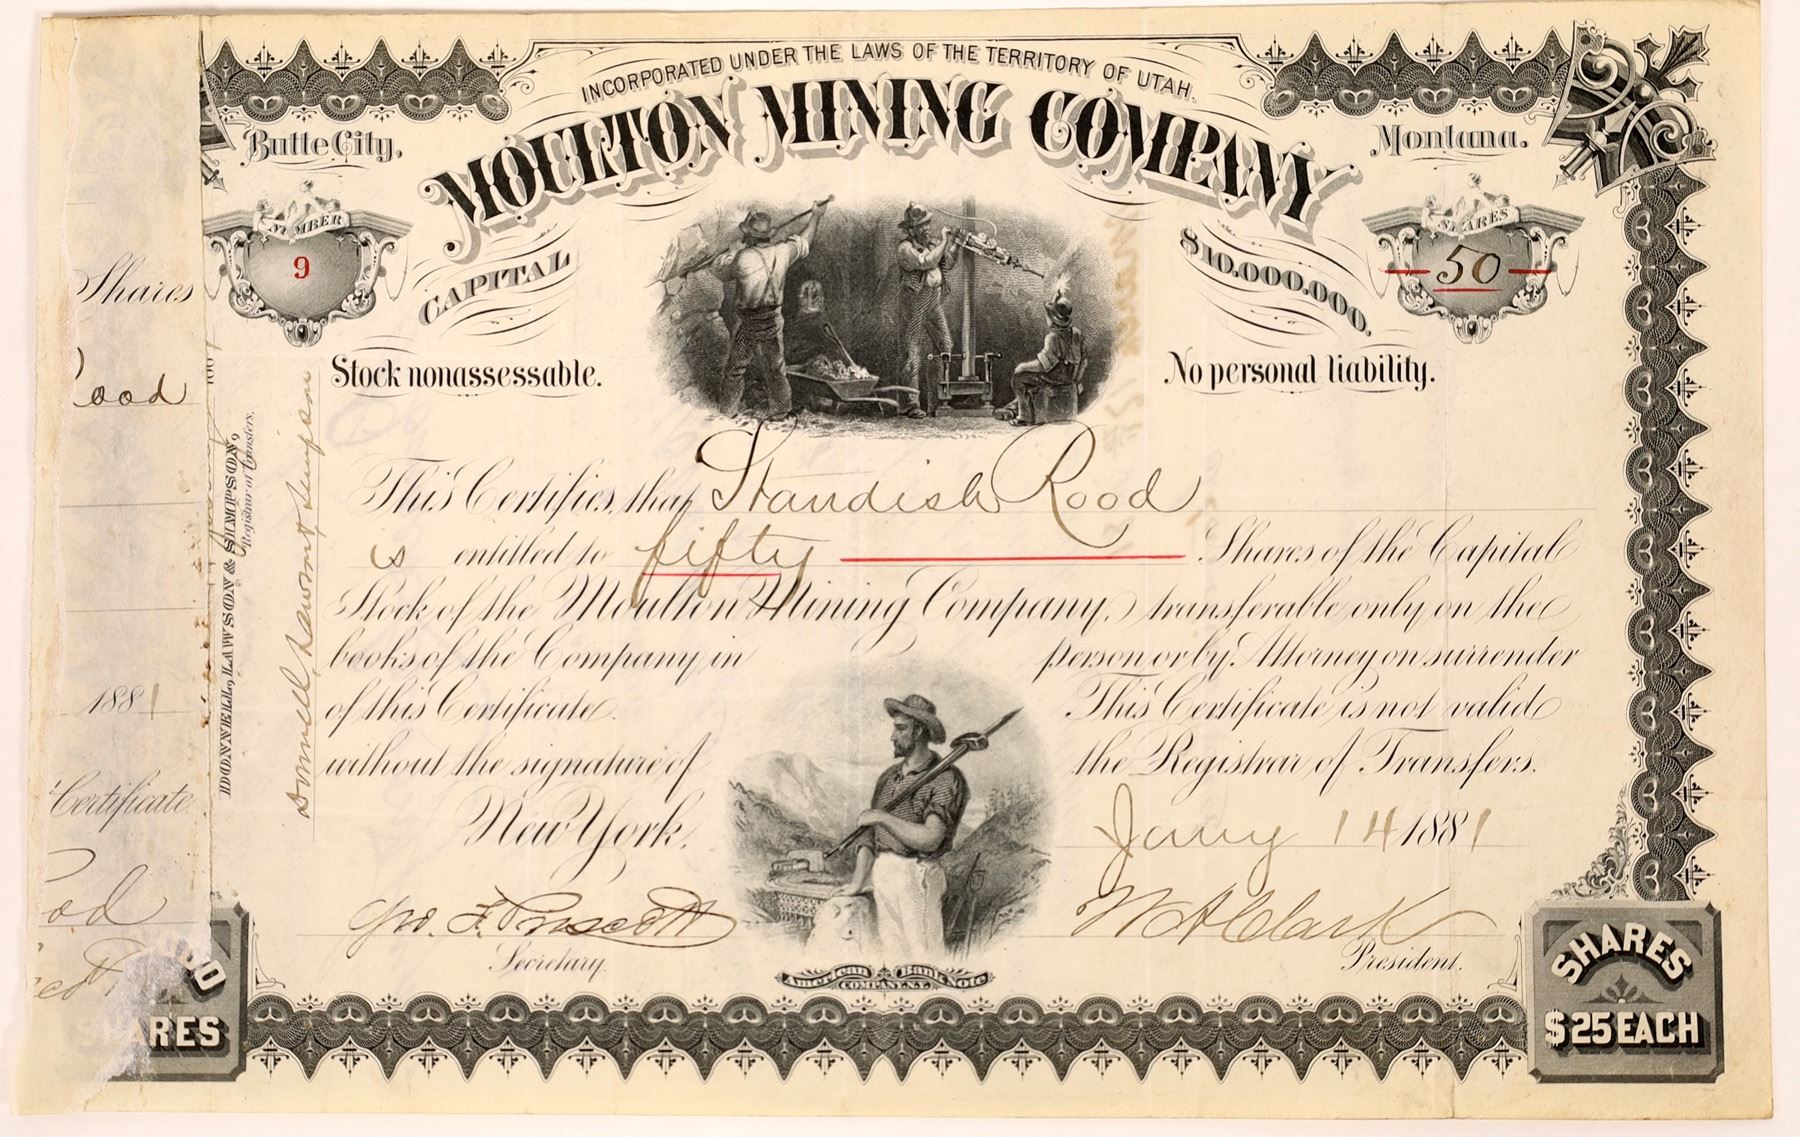 INCORPORATED UNDER THE LAWS OF THE TERRITORY OF UTAH.
Butte City,
MOULTON MINING COMPANY
Montana.
NUMBER
9
SHARES
50
CAPITAL
$10.000.000.
Stock nonassessable.
No personal liability.
This Certifies, that Standish Rood
is entitled to fifty Shares of the Capital
Stock of the Moulton Mining Company, transferable only on the
books of the Company in person or by Attorney on surrender
of this Certificate. This Certificate is not valid
without the signature of the Registrar of Transfers.
New York, Jany 14 1881
Geo. F. Prescott
Secretary.
W A Clark
President.
AMERICAN BANK NOTE
COMPANY N.Y.
SHARES
$25 EACH
SHARES
DONNELL, LAWSON & SIMPSON,
Registrar of Transfers.
Donnell Lawson & Simpson
Shares
ood
1881
Certificate
od